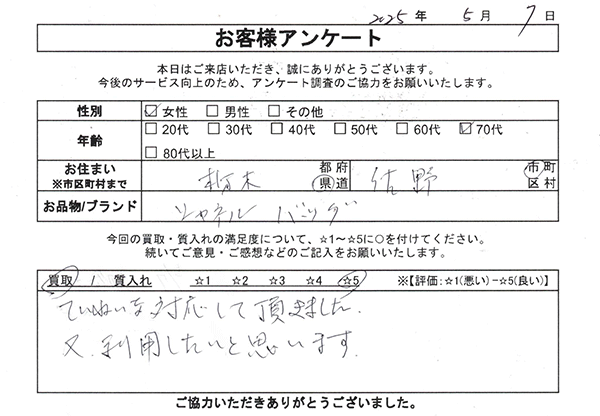 2025年 5月 7日
お客様アンケート
本日はご来店いただき、誠にありがとうございます。
今後のサービス向上のため、アンケート調査のご協力をお願いいたします。
性別 ☑女性 □男性 □その他
年齢 □20代 □30代 □40代 □50代 □60代 ☑70代
□80代以上
お住まい ※市区町村まで 栃木 都府県道 佐野 市町区村
お品物/ブランド シャネル バッグ
今回の買取・質入れの満足度について、☆1~☆5に○を付けてください。
続いてご意見・ご感想などのご記入をお願いいたします。
買取 / 質入れ ☆1 ☆2 ☆3 ☆4 ☆5 ※【評価:☆1(悪い)-☆5(良い)】
ていねいな対応して頂きました。
又、利用したいと思います。
ご協力いただきありがとうございました。